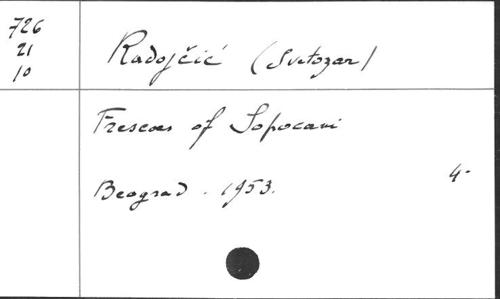 726
21
10
Radojčić (Svetozar)
Frescoes of Sopocani
Beograd. 1953.
4-